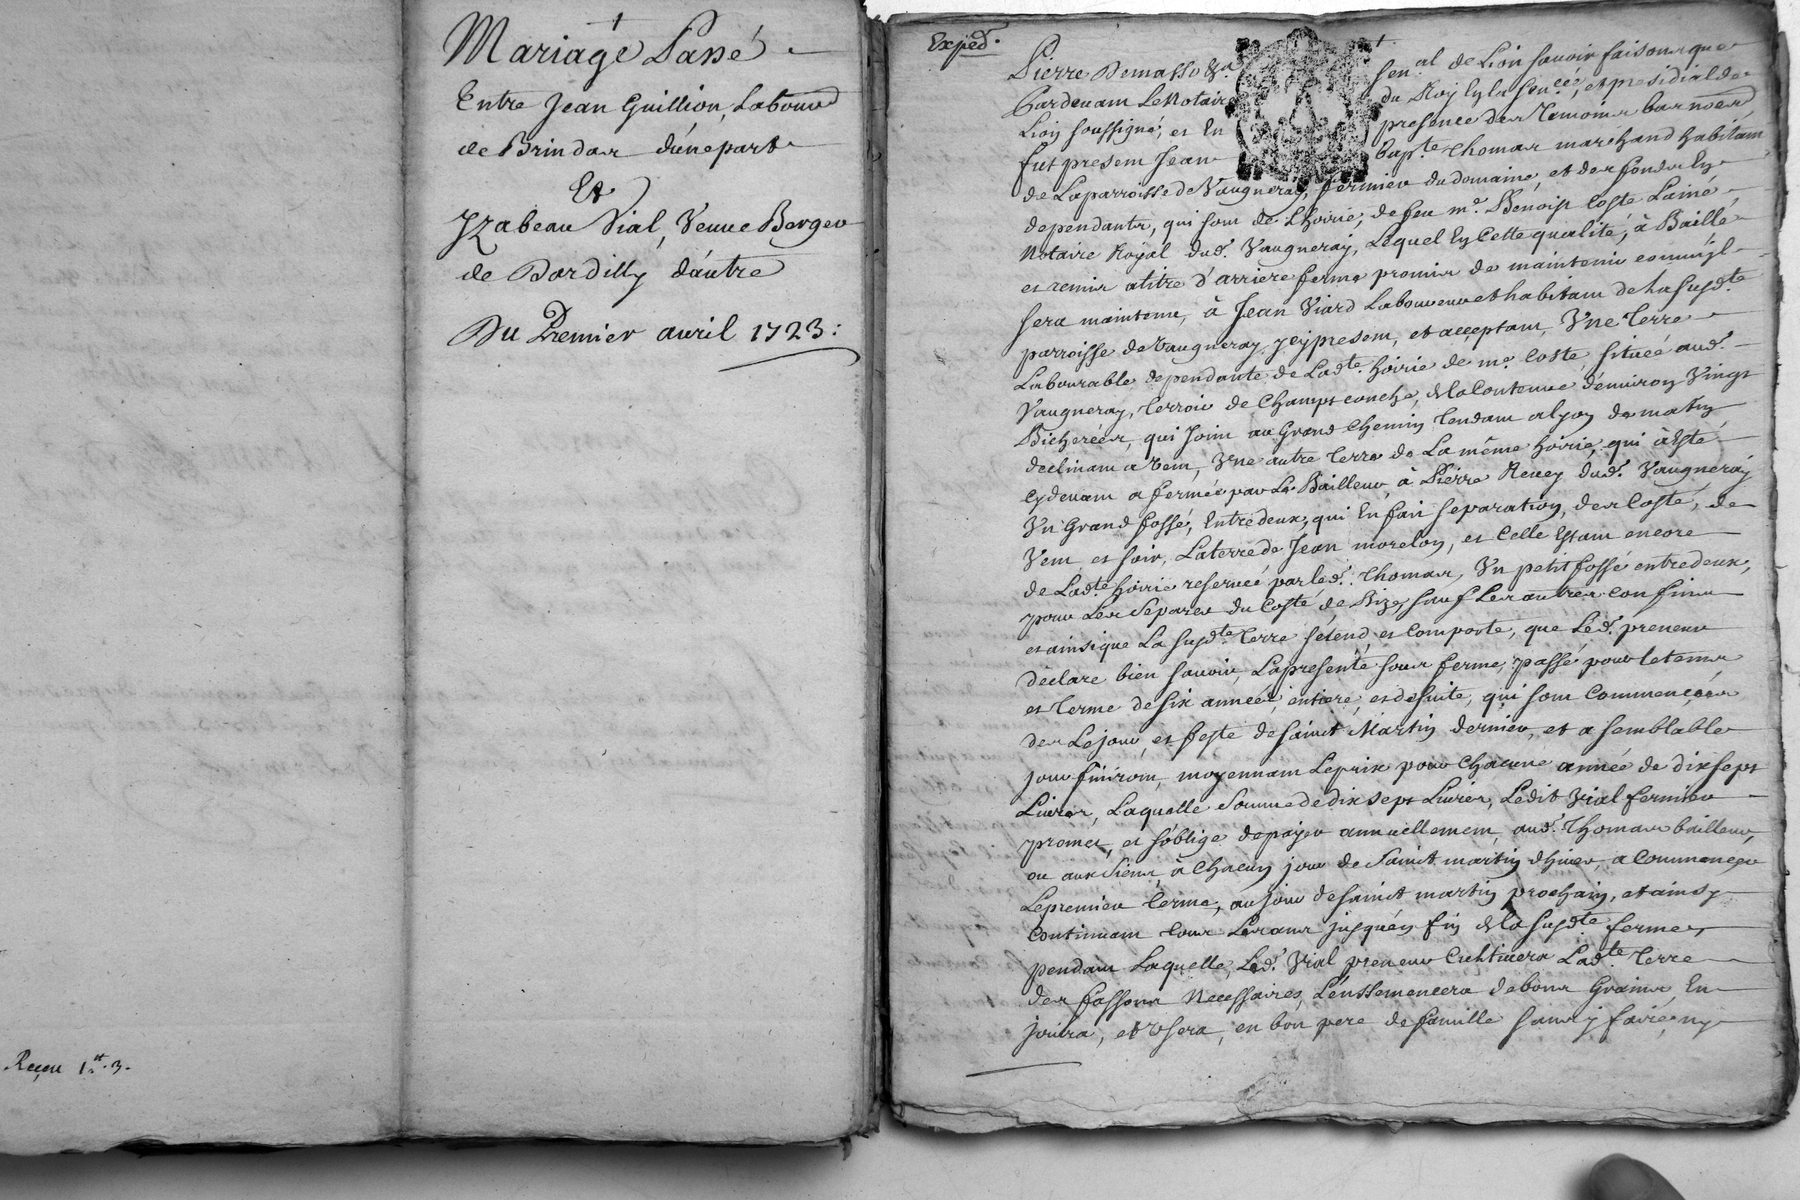 Mariage Passé
Entre Jean Guillion, Laboureur
de Brindas d'une part
Et
Yzabeau Vial, Veuve Berger
de Dardilly d'autre
Du Premier avril 1723 :
Receu 1# . 3.
Exped.
Pierre Demasso &a senal de Lion savoir faisons que
Pardevant Le Notaire du Roy En la sencée, et presidial de
Lion soussigné, et En presence des Temoins
fut present Jean Bapte Thomas marchand habitant
de La parroisse de Vaugneray, fermier du domaine, et des fonds En
dependants, qui sont de L'hoirie, de feu me. Benoist Coste Lainé,
Notaire Royal dud. Vaugneray, Lequel En Cette qualité, à Baillé
et remis atitre d'arriere ferme promis de maintenir comm'jl
sera maintenu, à Jean Viard Laboureur et habitant de La susdte
parroisse de Vaugneray jcy present, et acceptant, Vne Terre
Labourable dependante de Ladte. hoirie de me. Coste, situéé aud.
Vaugneray, Terroir de Champt conche, de la Contenue d'environ Vingt
Bicheréés, qui Joint au Grand Chemin Tendant a lyon de matin
declinant a Vent, Vne autre Terre de La même hoirie, qui à Esté
Cydevant a fermée par Le Bailleur, à Pierre Reney dud. Vaugneray
Vn Grand fossé, Entredeux, qui En fait separation, des Costé, de
Vent et soir, La terre de Jean morelon, et Celle Estant encore
de Ladte hoirie reservéé par led. Thomas, Vn petit fossé entredeux,
pour Les Separer du Costé, de Bize, sauf Les autres confins
et ainsi que La susdte. Terre s'étend et Comporte, que Led. preneur
déclare bien savoir, La presente sous ferme, passé pour le temps
et Terme de six année, entiere, et de suite, qui sont Commencées
dez Le jour, et feste de saint Martin dernier, et a semblable
jour finiront, moyennant Le prix pour Chacune année de dix sept
Livres, Laquelle Somme de dix sept Livres, Ledit Vial fermier
promet, et s'oblige de payer annuellement, aud. Thomas bailleur,
ou aux Siens, à Chacun jour de Saint martin d'hiver, a Commencer
Le premier Terme, au jour de saint martin prochain, et ainsy
Continuant Tous Les ans jusqu'en fin de la susdte. ferme,
pendant Laquelle, Led. Vial preneur Cultivera Ladte Terre
des fassons Necessaires, L'enssemencera de bons Grains, En
jouira, et Vsera, en bon pere de famille sans j faire, ny